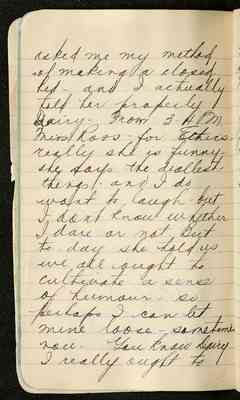 asked me my method
of making a closed
bed - and I actually
told her properly
dairy. From 3-4 P.M
Miss Ross - for Ethics
really she is funny
she says the drollest
things! and I do
want to laugh but
I dont know whether
I dare or not, But
to day she told us
we all ought to
cultivate a sense
of humour so
perhaps I can let
mine loose - sometime
now. You know dairy
I really ought to